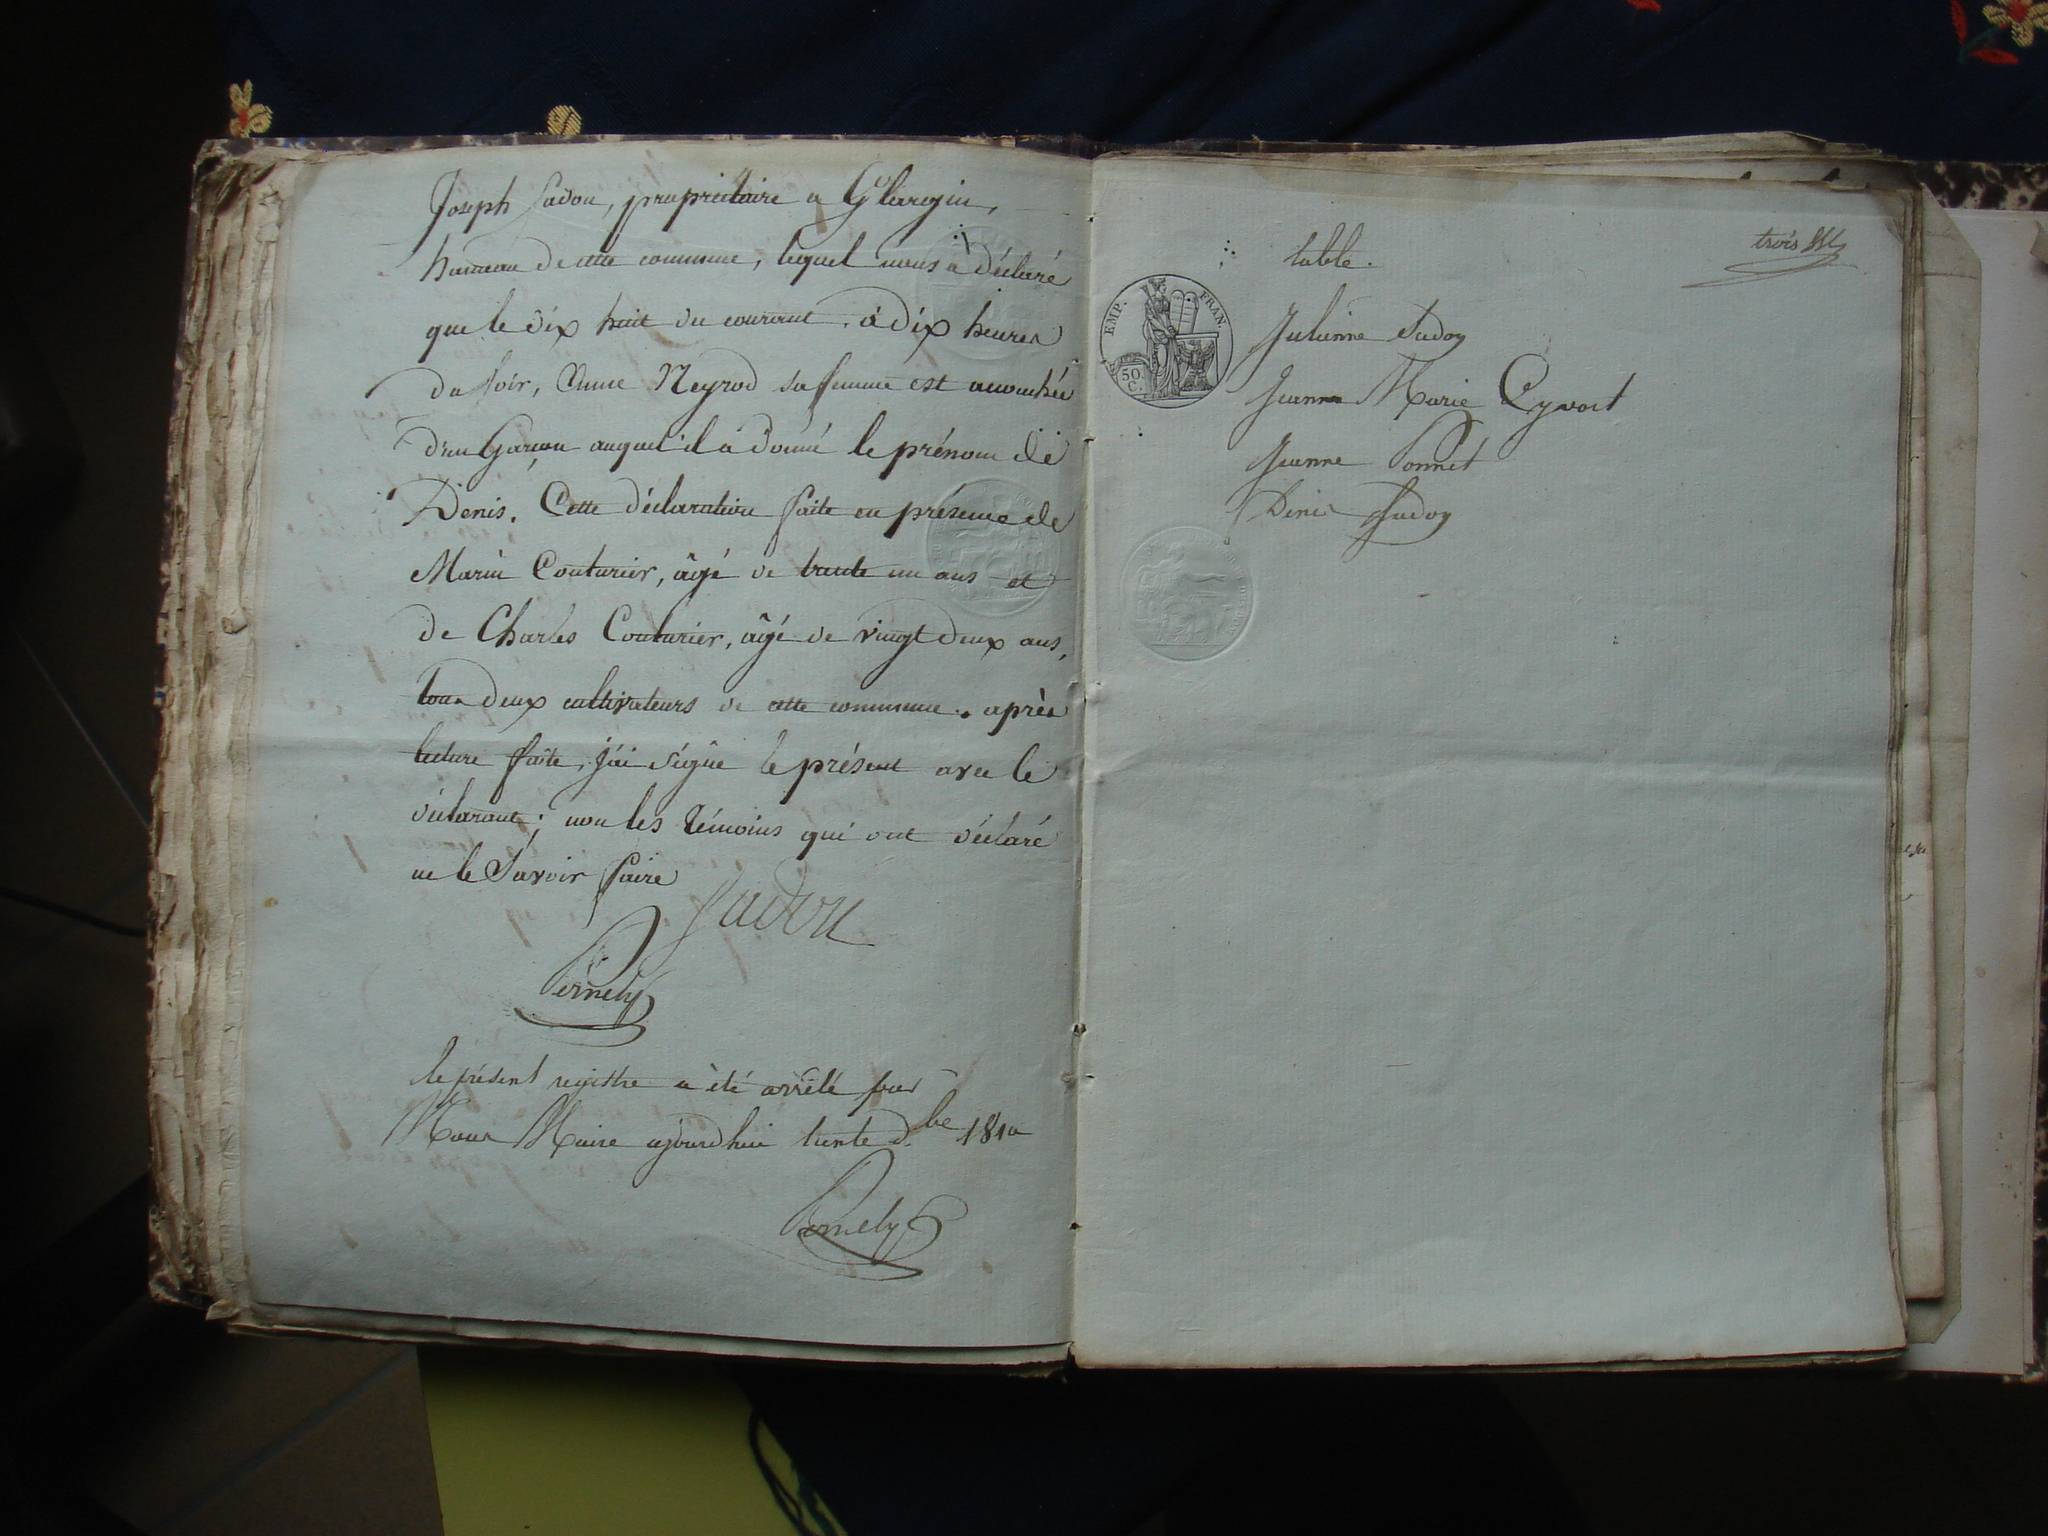 Joseph Sadou, propriétaire a Glareyin,
hameau de cette commune, lequel nous à déclaré
que le dix huit du courant, à dix heures
du Soir, Anne Neyrod sa femme est accouchée
d'un Garçon auquel il à donné le prénom de
Denis. Cette déclaration faite en présence de
Marin Couturier, âgé de trente un ans et
de Charles Couturier, âgé de vingt deux ans,
tous deux cultivateurs de cette commune. après
lecture faite, j'ai signé le présent avec le
déclarant; non les témoins qui ont déclaré
ne le Savoir faire
Sadou
Pernely
le présent registre a été arrêté par
Nous Maire ajourdhui trente d.bre 1810
Pernely
trois
table.
EMP. FRAN.
50 C.
Julienne Sadou
Jeanne Marie Eyvort
Jeanne Sonnet
Denis Sadou